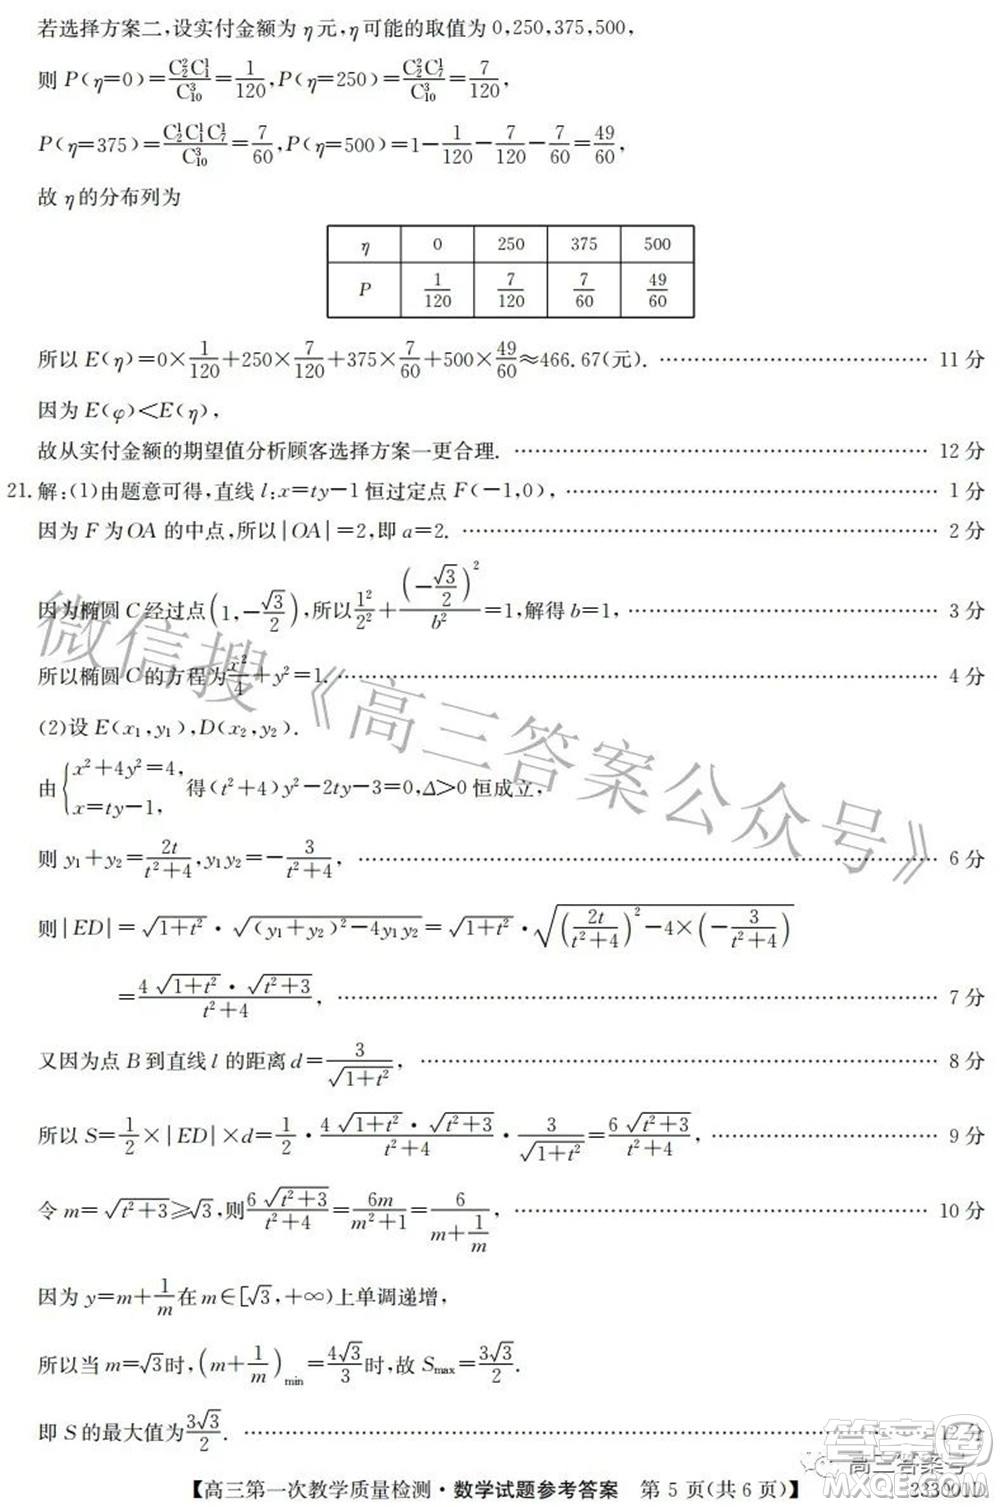 若选择方案二,设实付金额为 η 元,η 可能的取值为 0,250,375,500,
则 P(η=0)=C₂²C₁¹/C₁₀³=1/120,P(η=250)=C₂²C₇¹/C₁₀³=7/120,
P(η=375)=C₂¹C₁¹C₇¹/C₁₀³=7/60,P(η=500)=1−1/120−7/120−7/60=49/60,
故 η 的分布列为
η 0 250 375 500
P 1/120 7/120 7/60 49/60
所以 E(η)=0×1/120+250×7/120+375×7/60+500×49/60≈466.67(元). …… 11 分
因为 E(φ)<E(η),
故从实付金额的期望值分析顾客选择方案一更合理. …… 12 分
21. 解:(1)由题意可得,直线 l:x=ty−1 恒过定点 F(−1,0), …… 1 分
因为 F 为 OA 的中点,所以|OA|=2,即 a=2. …… 2 分
因为椭圆 C 经过点(1,−√3/2),所以 1²/2²+(−√3/2)²/b²=1,解得 b=1, …… 3 分
所以椭圆 C 的方程为 x²/4+y²=1. …… 4 分
(2)设 E(x₁,y₁),D(x₂,y₂).
由{x²+4y²=4, x=ty−1, 得(t²+4)y²−2ty−3=0,Δ>0 恒成立,
则 y₁+y₂=2t/(t²+4),y₁y₂=−3/(t²+4), …… 6 分
则|ED|=√(1+t²)·√((y₁+y₂)²−4y₁y₂)=√(1+t²)·√((2t/(t²+4))²−4×(−3/(t²+4)))
=4√(1+t²)·√(t²+3)/(t²+4), …… 7 分
又因为点 B 到直线 l 的距离 d=3/√(1+t²), …… 8 分
所以 S=1/2×|ED|×d=1/2·4√(1+t²)·√(t²+3)/(t²+4)·3/√(1+t²)=6√(t²+3)/(t²+4), …… 9 分
令 m=√(t²+3)≥√3,则 6√(t²+3)/(t²+4)=6m/(m²+1)=6/(m+1/m), …… 10 分
因为 y=m+1/m 在 m∈[√3,+∞)上单调递增,
所以当 m=√3 时,(m+1/m)min=4√3/3 时,故 Smax=3√3/2.
即 S 的最大值为 3√3/2. …… 12 分
【高三第一次教学质量检测·数学试题参考答案 第 5 页(共 6 页)】
233001D
微信搜《高三答案公众号》
高三答案号
答案圈
MXQE.COM